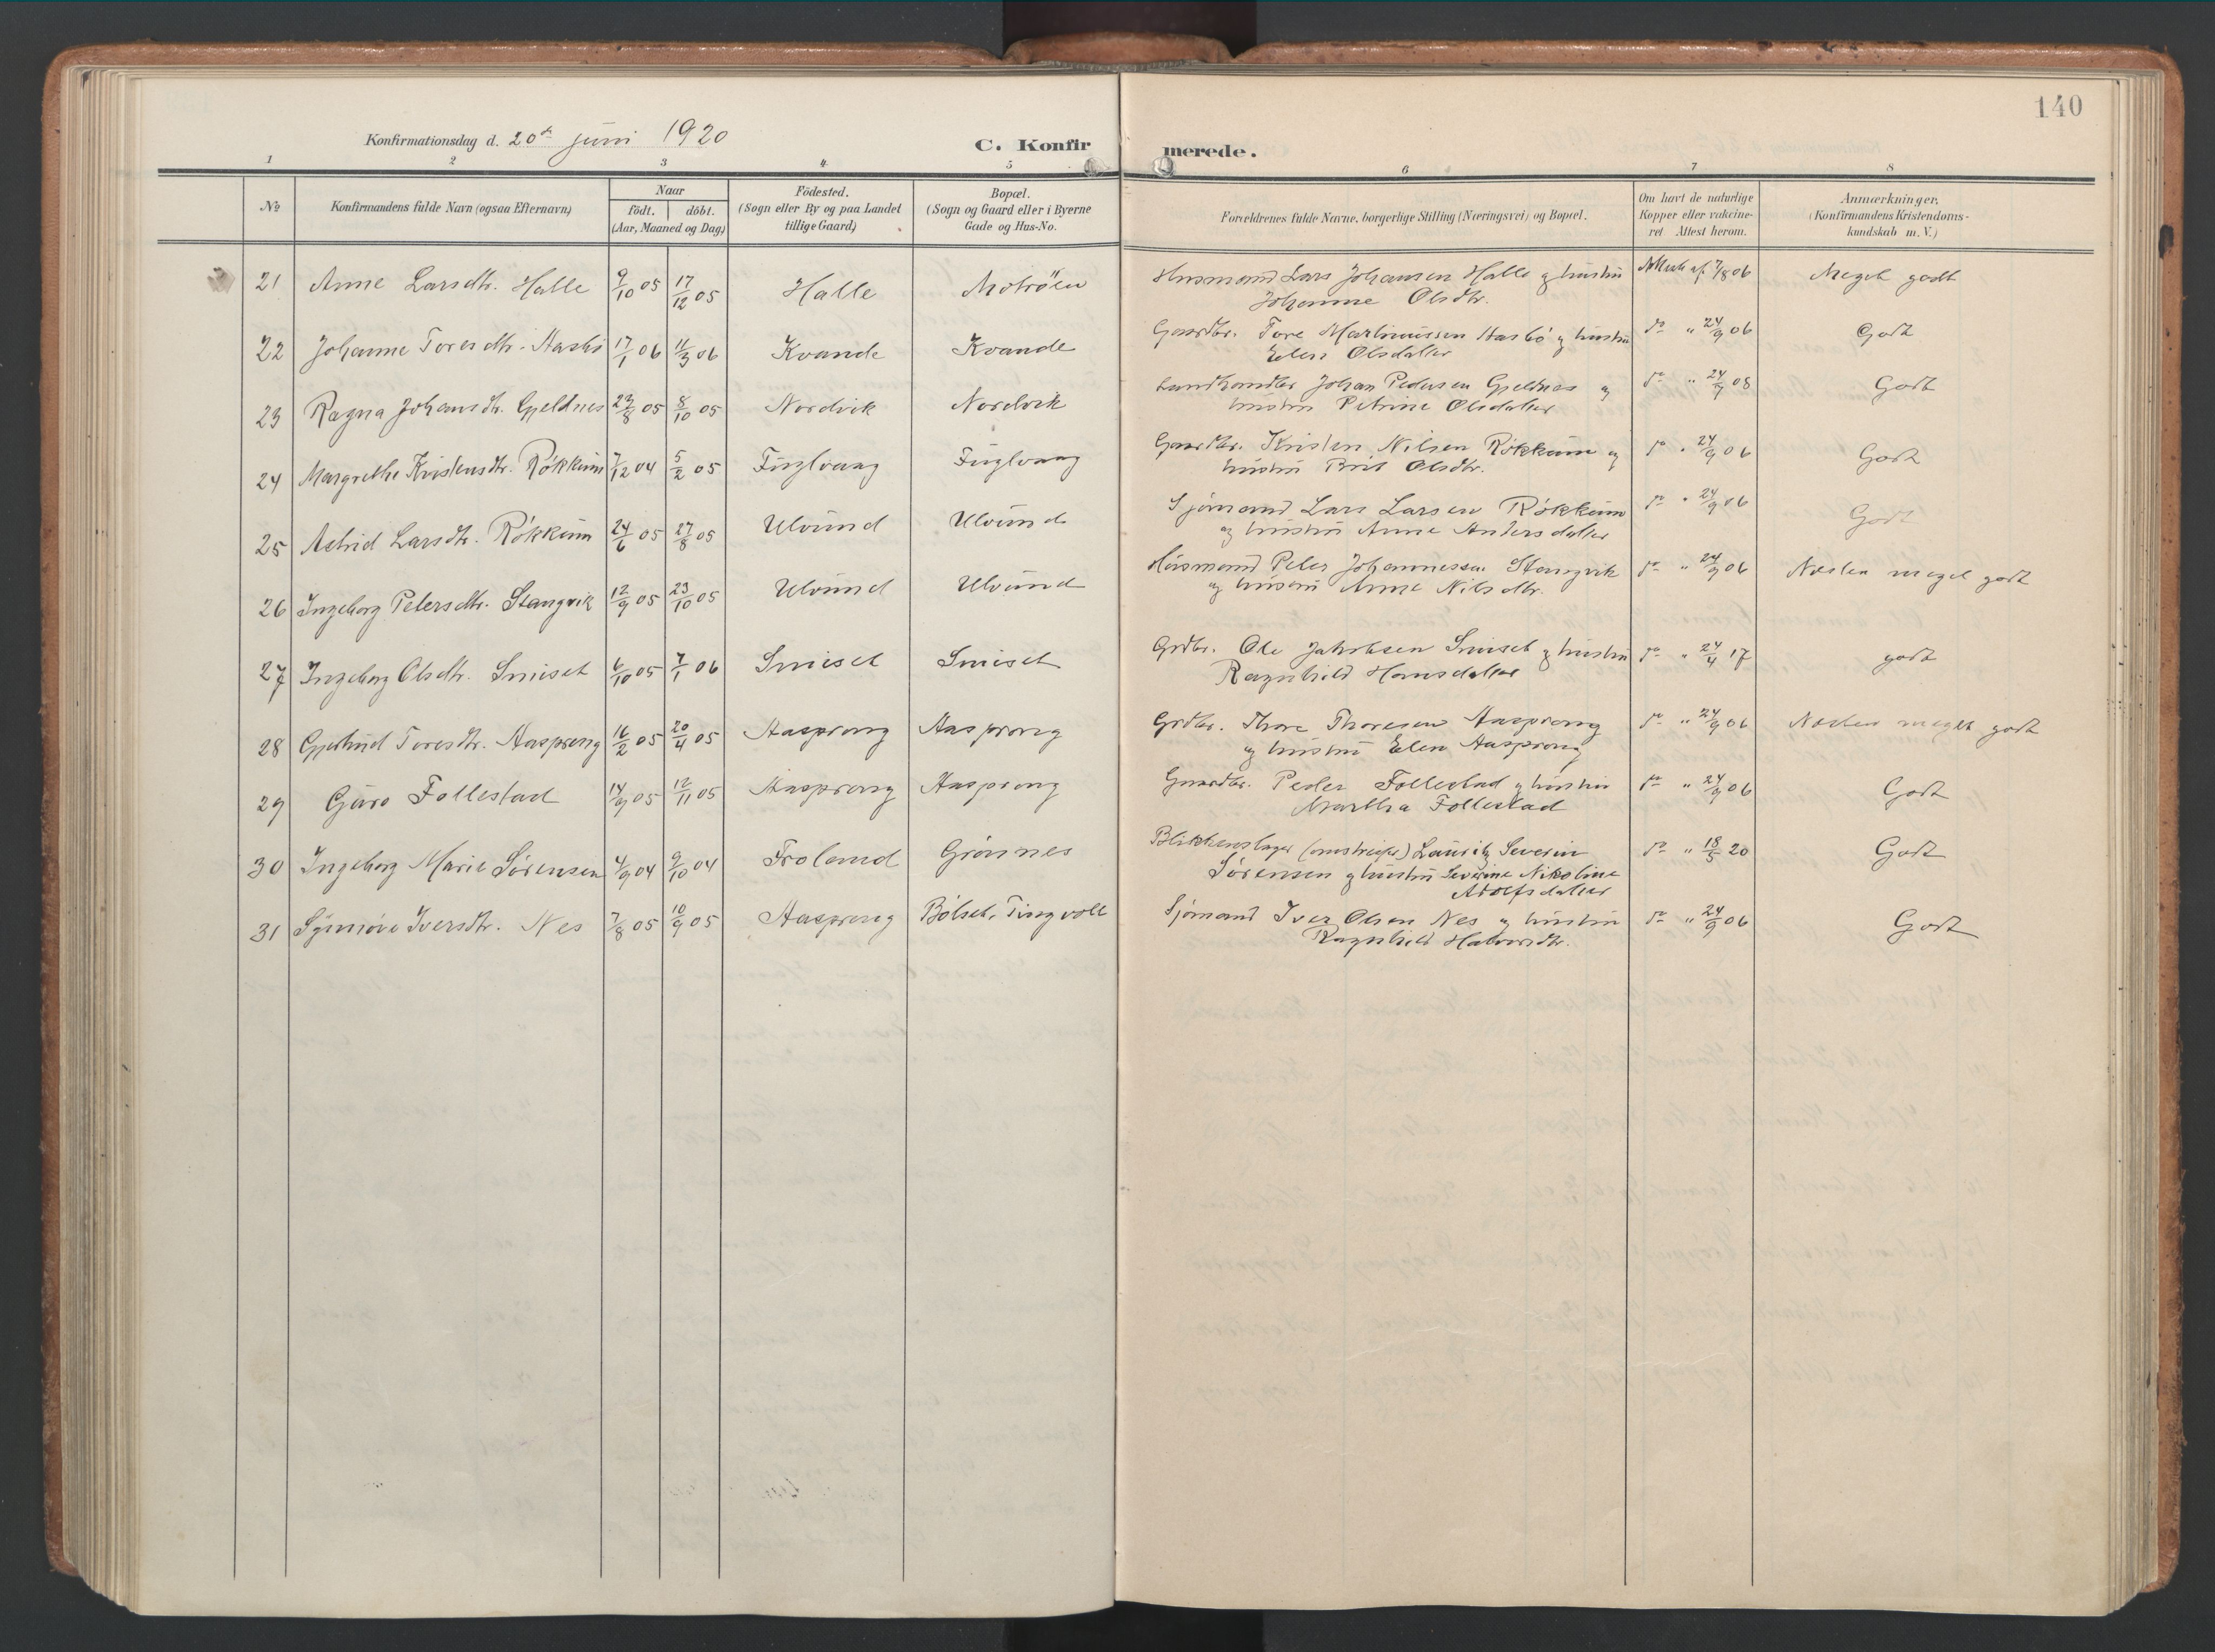 140
Konfirmationsdag d. 20de juni 1920
C. Konfirmerede.
1 2 3 4 5 6 7 8
No
Konfirmandens fulde Navn (ogsaa Efternavn)
Naar
födt. | döbt.
(Aar, Maaned og Dag)
Födested.
(Sogn eller By og paa Landet
tillige Gaard)
Bopæl.
(Sogn og Gaard eller i Byerne
Gade og Hus-No.
Forældrenes fulde Navne, borgerlige Stilling (Næringsvei) og Bopæl.
Om havt de naturlige
Kopper eller vakcine-
ret Attest herom.
Anmærkninger,
(Konfirmandens Kristendoms-
kundskab m. V.)
21 Anne Larsdtr. Halle 9/10 05 17/12 05 Halle Husmand Lars Johansen Halle og hustru 7/8 06 Meget godt
Johanne Olsdtr.
22 Johanne Toresdtr. Hasbö 17/1 06 11/3 06 Kvande Kvande Gaardbr. Tore Martinussen Hasbö og hustru do " 24/9 06 Godt
Elen Olsdatter
23 Ragna Johansdtr. Gjeldnes 23/8 05 8/10 05 Nordvik Nordvik Landhandler Johan Pedersen Gjeldnes og do " 24/9 Godt
hustru Petrine Olsdatter
24 Margrethe Kristensdtr. Rökkum 7/12 04 5/2 05 Fuglvaag Fuglvaag Gaardbr. Kristen Nilsen Rökkum og do " 24/9 06 Godt
hustru Brit Olsdtr.
25 Astrid Larsdtr. Rökkum 24/6 05 27/8 05 Ulvund Ulvund Sjömand Lars Larsen Rökkum do " 24/9 06 Godt
og hustru Anne Andersdatter
26 Ingeborg Petersdtr. Stangvik 12/9 05 23/10 05 Ulvund Ulvund Husmand Peter Johannessen Stangvik do " 24/9 06 Næsten meget godt
og hustru Anne Nilsdtr.
27 Ingeborg Olsdtr. Smiset 6/10 05 7/1 06 Smiset Smiset Grdbr. Ole Jakobsen Smiset og hustru do " 24/4 17 godt
Ragnhild Hansdatter
28 Gjertrud Toresdtr. Aasprong 16/2 05 20/4 05 Aasprong Aasprong Grdbr. Thore Thoresen Aasprong do " 24/9 06 Næsten meget godt
og hustru Elen Aasprong
29 Guro Follestad 14/9 05 12/11 05 Aasprong Aasprong Gaardbr. Peder Follestad og hustru do " 24/9 06 Godt
Martha Follestad
30 Ingeborg Marie Sörensen 4/9 04 9/10 04 Froland Grönnes Blikkenslager (omstreifer) Lauritz Severin do " 18/5 20 Godt
Sörensen og hustru Severine Nikoline
Adolfsdatter
31 Synnöve Iversdtr. Nes 7/8 05 10/9 05 Aasprong Bölset, Tingvoll Sjömand Iver Olsen Nes og hustru do " 24/9 06 Godt
Ragnhild Halvorsdtr.